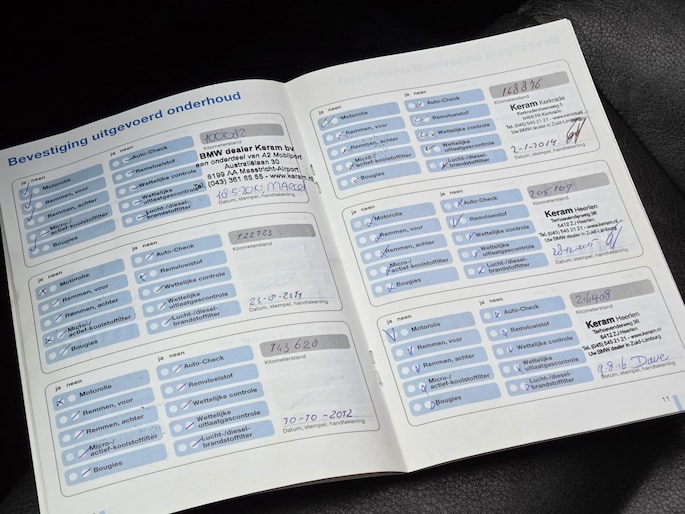 Bevestiging uitgevoerd onderhoud
ja neen
Motorolie
Remmen, voor
Remmen, achter
Micro-/
actief-koolstoffilter
Bougies
Auto-Check
Remvloeistof
Wettelijke controle
Wettelijke
uitlaatgascontrole
Lucht-/diesel-
brandstoffilter
100032
Kilometerstand
BMW dealer Keram bv
een onderdeel van A2 Mobiliport
Australiëlaan 30
6199 AA Maastricht-Airport
(043) 361 85 55 - www.keram.nl
MARCEL
Datum, stempel, handtekening
ja neen
Motorolie
Remmen, voor
Remmen, achter
Micro-/
actief-koolstoffilter
Bougies
ja neen
Auto-Check
Remvloeistof
Wettelijke controle
Wettelijke
uitlaatgascontrole
Lucht-/diesel-
brandstoffilter
122723
Kilometerstand
Datum, stempel, handtekening
ja neen
Motorolie
Remmen, voor
Remmen, achter
Micro-/
actief-koolstoffilter
Bougies
ja neen
Auto-Check
Remvloeistof
Wettelijke controle
Wettelijke
uitlaatgascontrole
Lucht-/diesel-
brandstoffilter
143620
Kilometerstand
10-10-2012
Datum, stempel, handtekening
ja neen
Motorolie
Remmen, voor
Remmen, achter
Micro-/
actief-koolstoffilter
Bougies
ja neen
Auto-Check
Remvloeistof
Wettelijke controle
Wettelijke
uitlaatgascontrole
Lucht-/diesel-
brandstoffilter
168896
Kilometerstand
Keram Kerkrade
Tel. (045) 545 21 21 - www.keram.nl
Uw BMW dealer in Zuid-Limburg
2-1-2014
Datum, stempel, handtekening
ja neen
Motorolie
Remmen, voor
Remmen, achter
Micro-/
actief-koolstoffilter
Bougies
ja neen
Auto-Check
Remvloeistof
Wettelijke controle
Wettelijke
uitlaatgascontrole
Lucht-/diesel-
brandstoffilter
205109
Kilometerstand
Keram Heerlen
Terhoevenderweg 96
6412 ZJ Heerlen
Tel. (045) 545 21 21 - www.keram.nl
Uw BMW dealer in Zuid-Limburg
Datum, stempel, handtekening
ja neen
Motorolie
Remmen, voor
Remmen, achter
Micro-/
actief-koolstoffilter
Bougies
ja neen
Auto-Check
Remvloeistof
Wettelijke controle
Wettelijke
uitlaatgascontrole
Lucht-/diesel-
brandstoffilter
216408
Kilometerstand
Keram Heerlen
Terhoevenderweg 96
6412 ZJ Heerlen
Tel. (045) 545 21 21 - www.keram.nl
Uw BMW dealer in Zuid-Limburg
9.8.16 Dave
Datum, stempel, handtekening
11